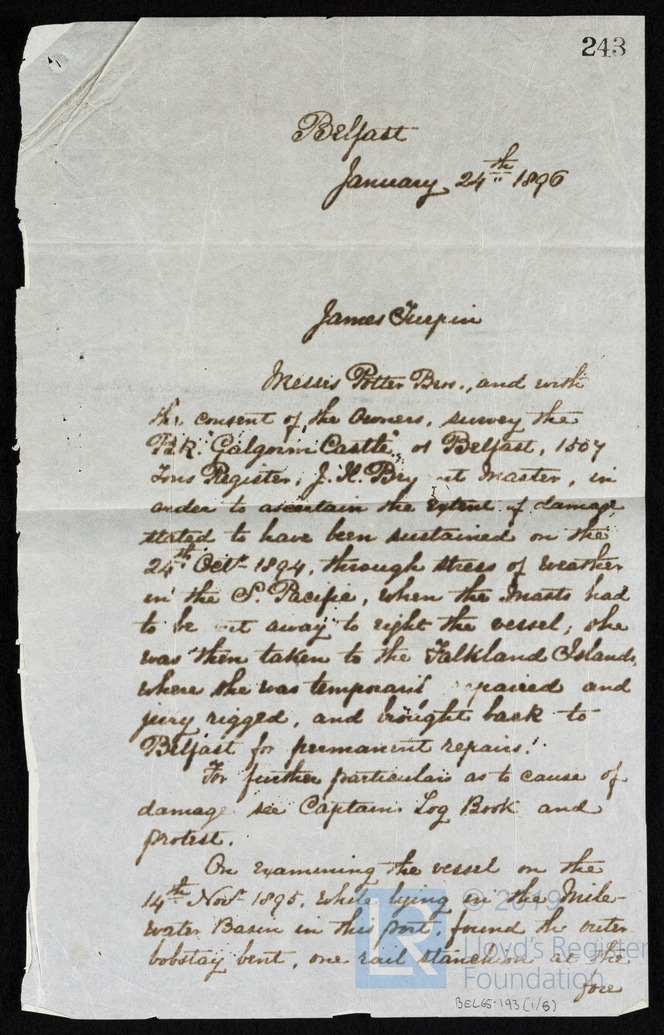 243
Belfast
January 24th 1896
James Turpin
Messrs Potter Bros., and with
the consent of the Owners, survey the
Bk "Galgorm Castle" of Belfast, 1567
Tons Register, J. K. Master, in
order to ascertain the extent of damage
stated to have been sustained on the
24th Octr 1894, through stress of weather
in the S. Pacific, when the Masts had
to be away to right the vessel; she
was then taken to the Falkland Islands,
where she was and
jury rigged, and brought back to
Belfast for permanent repairs.
For further particulars as to cause of
damage see Captains Log Book and
protest.
On examining the vessel on the
14th Novr 1895, while lying in the Mile-
water Basin in this port, found the outer
bobstay bent, one rail stanchion at the
fore
© 2019
Lloyd's Register
Foundation
LR
BEL65-193(1/6)